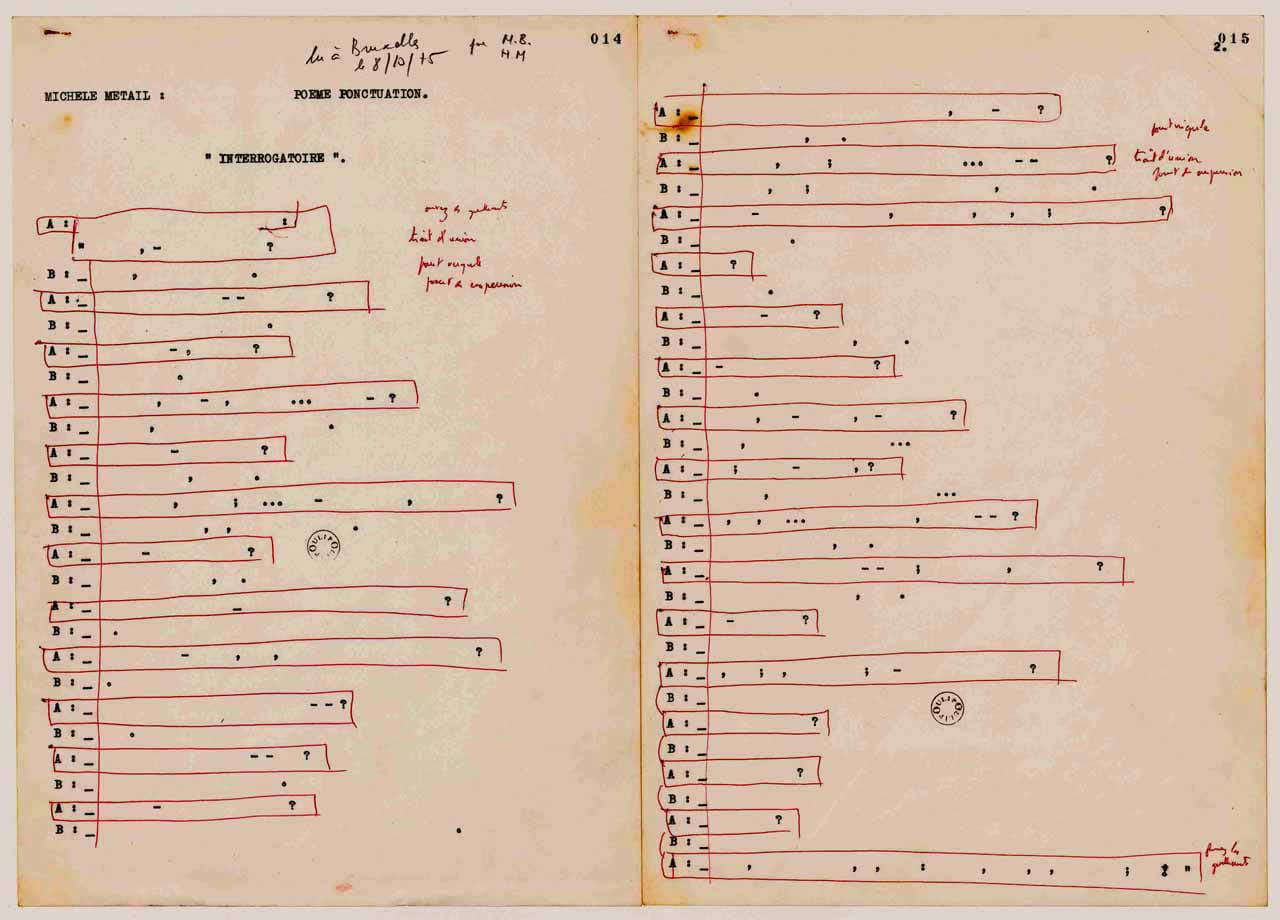 lu à Bruxelles par M.B.
le 8/10/75 M M
014
MICHELE METAIL : POEME PONCTUATION.
" INTERROGATOIRE ".
A : :
" ,- ?
ouvrez les guillemets
trait d'union
point virgule
point de suspension
B : _ , .
A : _ -- ?
B : _ .
A : _ -, ?
B : _ .
A : _ , - , ... - ?
B : _ , .
A : _ - ?
B : _ , .
A : _ , ; ... - , ?
B : _ , , .
A : _ - ?
B : _ , .
A : _ - ?
B : _ .
A : _ - , , ?
B : _ .
A : _ --?
B : _ .
A : _ -- ?
B : _ .
A : _ - ?
B : _ .
OULIPO
015
2.
A : _ , - ?
B : _ , .
A : _ , ; ... -- ?
B : _ , ; , .
A : _ - , , , ; ?
B : _ .
A : _ ?
B : _ .
A : _ - ?
B : _ , .
A : _ - ?
B : _ .
A : _ , - , - ?
B : _ , ...
A : _ ; - ,?
B : _ , ...
A : _ , , ... , -- ?
B : _ , .
A : _ -- ; , ?
B : _ , .
A : _ - ?
B : _
A : _ , ; , ; - ?
B : _
A : _ ?
B : _
A : _ ?
B : _
A : _ ?
B : _
A : _ , , , : , , , ; ! "
point virgule
trait d'union
point de suspension
OULIPO
fermez les
guillemets